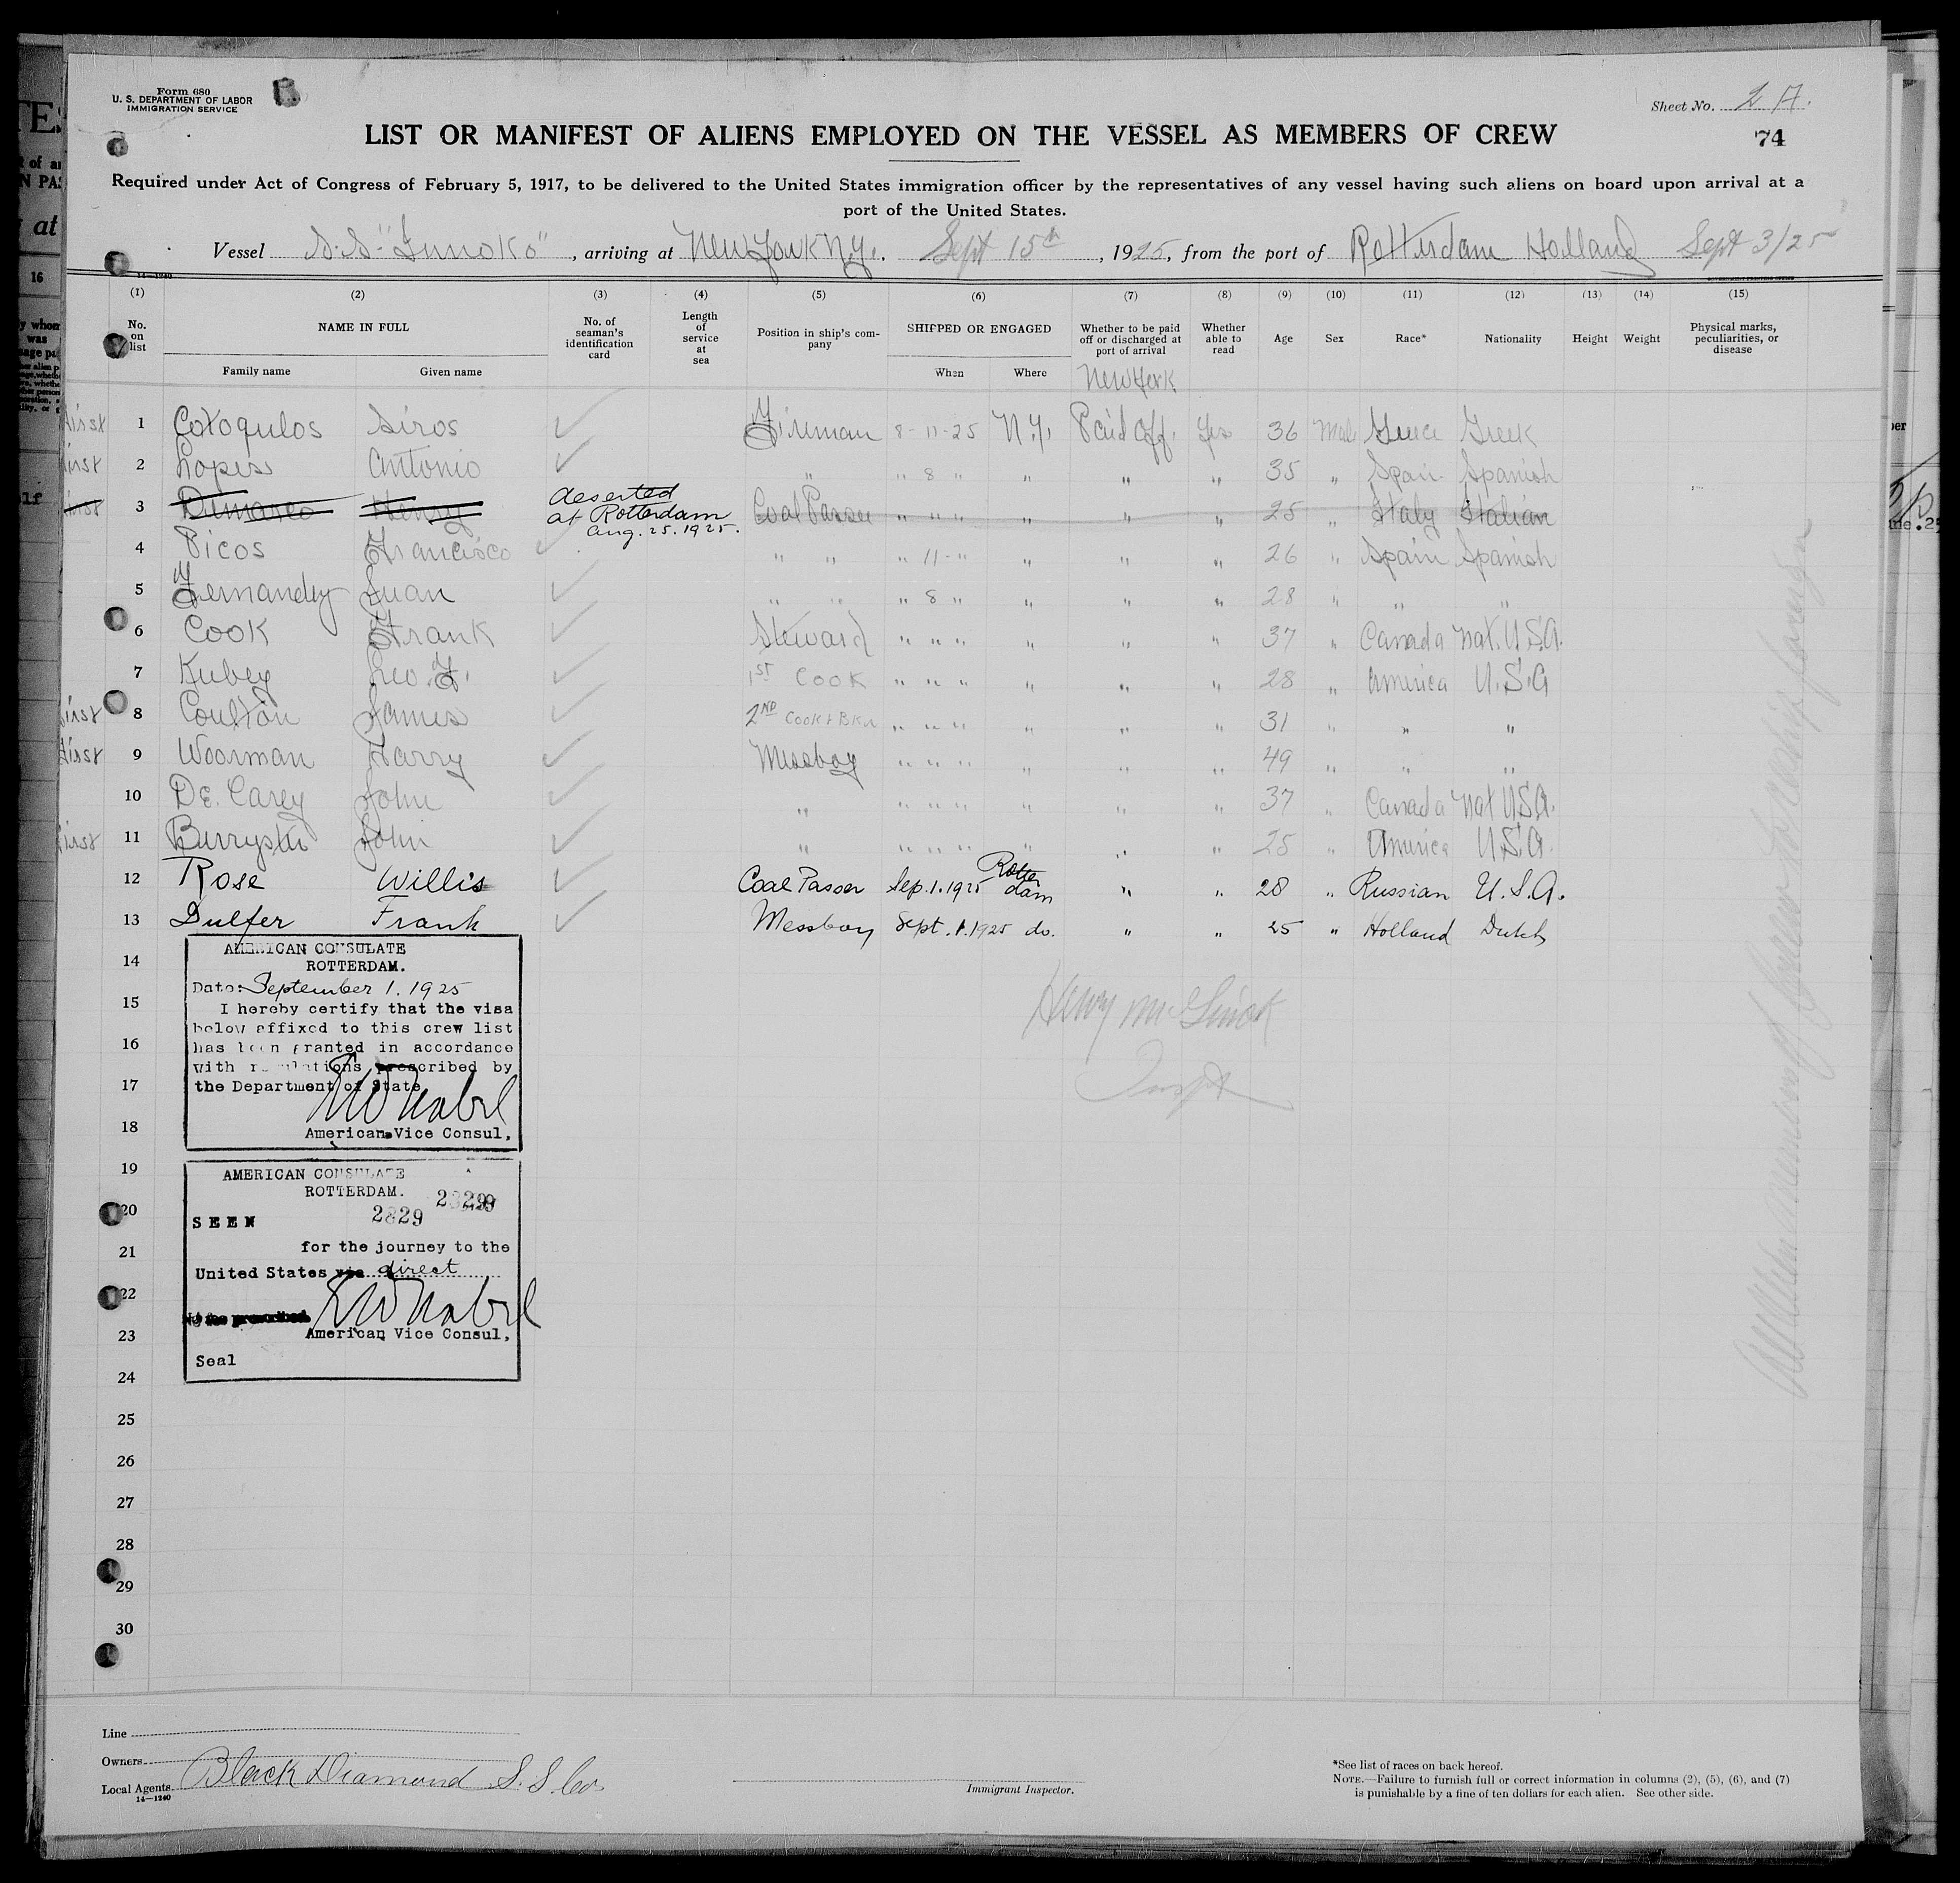 Form 680
U. S. DEPARTMENT OF LABOR
IMMIGRATION SERVICE
Sheet No. 2 A.
LIST OR MANIFEST OF ALIENS EMPLOYED ON THE VESSEL AS MEMBERS OF CREW
74
Required under Act of Congress of February 5, 1917, to be delivered to the United States immigration officer by the representatives of any vessel having such aliens on board upon arrival at a
port of the United States.
Vessel S.S. "Innoko", arriving at New York N.Y. Sept 15th, 1925, from the port of Rotterdam Holland Sept 3/25
14-1240
(1) (2) (3) (4) (5) (6) (7) (8) (9) (10) (11) (12) (13) (14) (15)
No. on list NAME IN FULL Family name Given name No. of seaman's identification card Length of service at sea Position in ship's company SHIPPED OR ENGAGED When Where Whether to be paid off or discharged at port of arrival Whether able to read Age Sex Race* Nationality Height Weight Physical marks, peculiarities, or disease
New York
first 1 Cotoqulos Siros Fireman 8-11-25 N.Y. Paid Off. Yes 36 Male Greece Greek
first 2 Lopes Antonio " " 8 " " " " 35 " Spain Spanish
first 3 Dimarco Henry deserted at Rotterdam Aug. 25. 1925. Coal Passer " " " " " " 25 " Italy Italian
4 Picos Francisco " " " 11 - " " " " 26 " Spain Spanish
5 Fernandez Juan " " " 8 " " " " 28 " " "
6 Cook Frank Steward " " " " " " 37 " Canada Nat. U.S.A.
7 Kubey Leo. F. 1st Cook " " " " " " 28 " America U.S.A
first 8 Coulton James 2ND Cook & Bkr " " " " " " 31 " " "
first 9 Woorman Harry Messboy " " " " " " 49 " " "
10 De. Carey John " " " " " " " 37 " Canada Nat U.S.A.
first 11 John " " " " " " " 25 " America U.S.A.
12 Rose Willis Coal Passer Sep. 1. 1925 Rotterdam " " 28 " Russian U. S. A.
13 Dulfer Frank Messboy Sept. 1. 1925 do. " " 25 " Holland Dutch
14
15
16
17
18
19
20
21
22
23
24
25
26
27
28
29
30
AMERICAN CONSULATE
ROTTERDAM.
Date: September 1. 1925
I hereby certify that the visa
below affixed to this crew list
has been granted in accordance
with regulations prescribed by
the Department of State
American Vice Consul,
AMERICAN CONSULATE
ROTTERDAM.
SEEN 2829 2829
for the journey to the
United States via direct
No fee prescribed.
American Vice Consul,
Seal
Henry
Inspt
Line
Owners
Local Agents Black Diamond S. S. Co.
14-1240
Immigrant Inspector.
*See list of races on back hereof.
NOTE.—Failure to furnish full or correct information in columns (2), (5), (6), and (7)
is punishable by a fine of ten dollars for each alien. See other side.